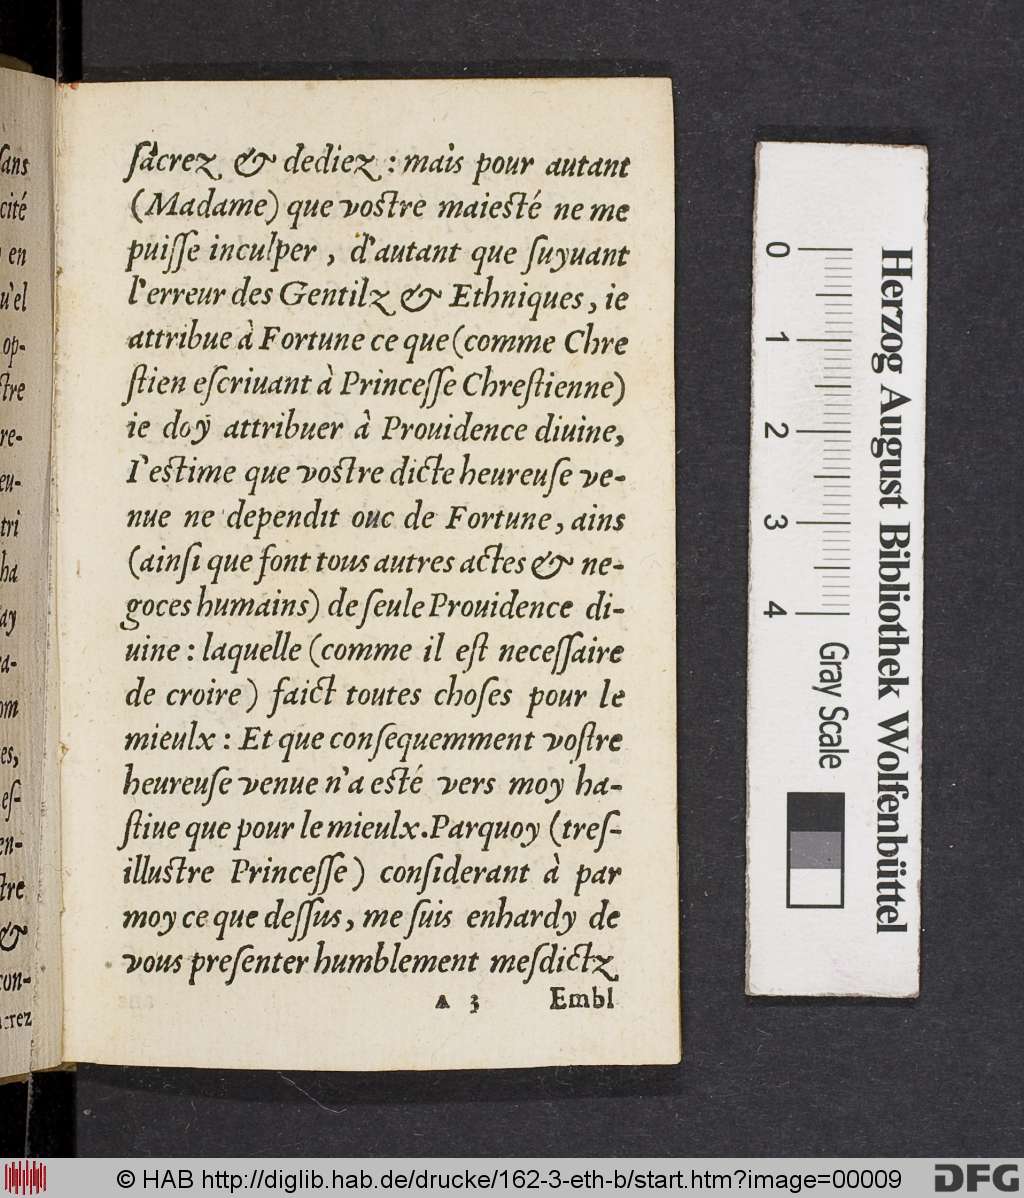 ſacrez & dediez : mais pour autant
(Madame) que voſtre maieſté ne me
puiſſe inculper, d'autant que ſuyuant
l'erreur des Gentilz & Ethniques, ie
attribue à Fortune ce que (comme Chre
ſtien eſcriuant à Princeſſe Chreſtienne)
ie doy attribuer à Prouidence diuine,
I'eſtime que voſtre dicte heureuſe ve-
nue ne dependit onc de Fortune, ains
(ainſi que font tous autres actes & ne-
goces humains) de ſeule Prouidence di-
uine : laquelle (comme il eſt neceſſaire
de croire) faict toutes choſes pour le
mieulx : Et que conſequemment voſtre
heureuſe venue n'a eſté vers moy ha-
ſtiue que pour le mieulx. Parquoy (treſ-
illuſtre Princeſſe) conſiderant à par
moy ce que deſſus, me ſuis enhardy de
vous preſenter humblement meſdictz
A 3 Embl
ſans
cité
en
u'el
op-
ſtre
re-
eu-
tri
ha
ay
a-
om
es,
eſ-
en-
ſtre
&
con-
crez
0 1 2 3 4 Gray Scale
Herzog August Bibliothek Wolfenbüttel
© HAB http://diglib.hab.de/drucke/162-3-eth-b/start.htm?image=00009
DFG